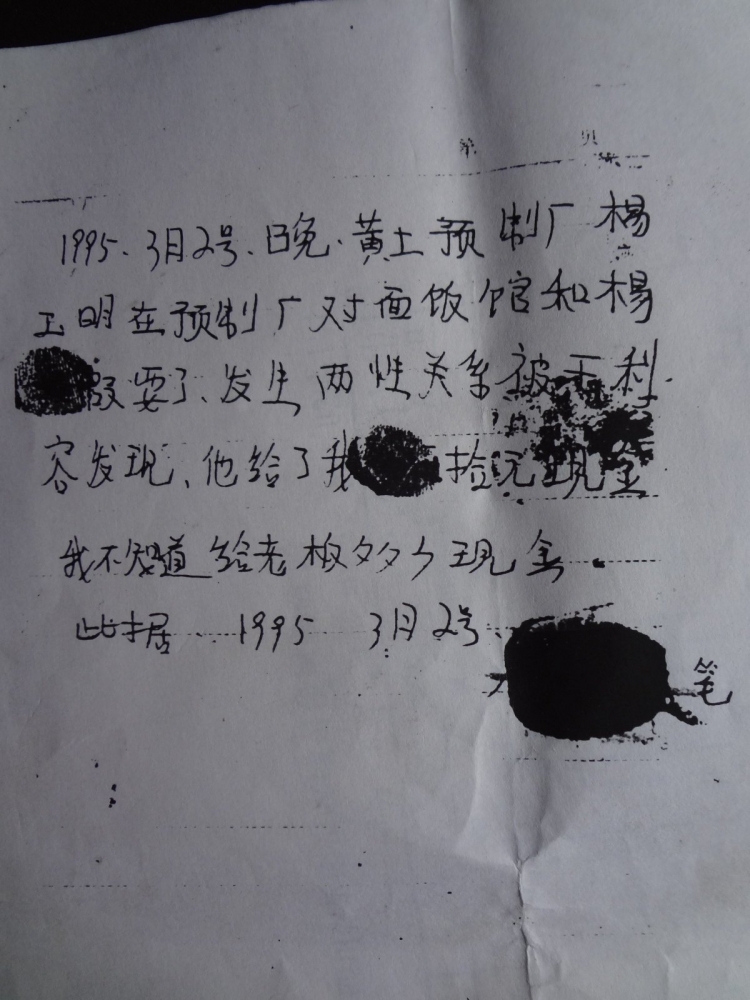 第 页
1995、3月2号、日免、黄土预制厂杨
玉明在预制厂对面饭馆和杨
要了、发生两性关系被王利
容发现、他给了我 拾元现金
我不知道给老板多少现金.
此据、1995 3月2号、
笔